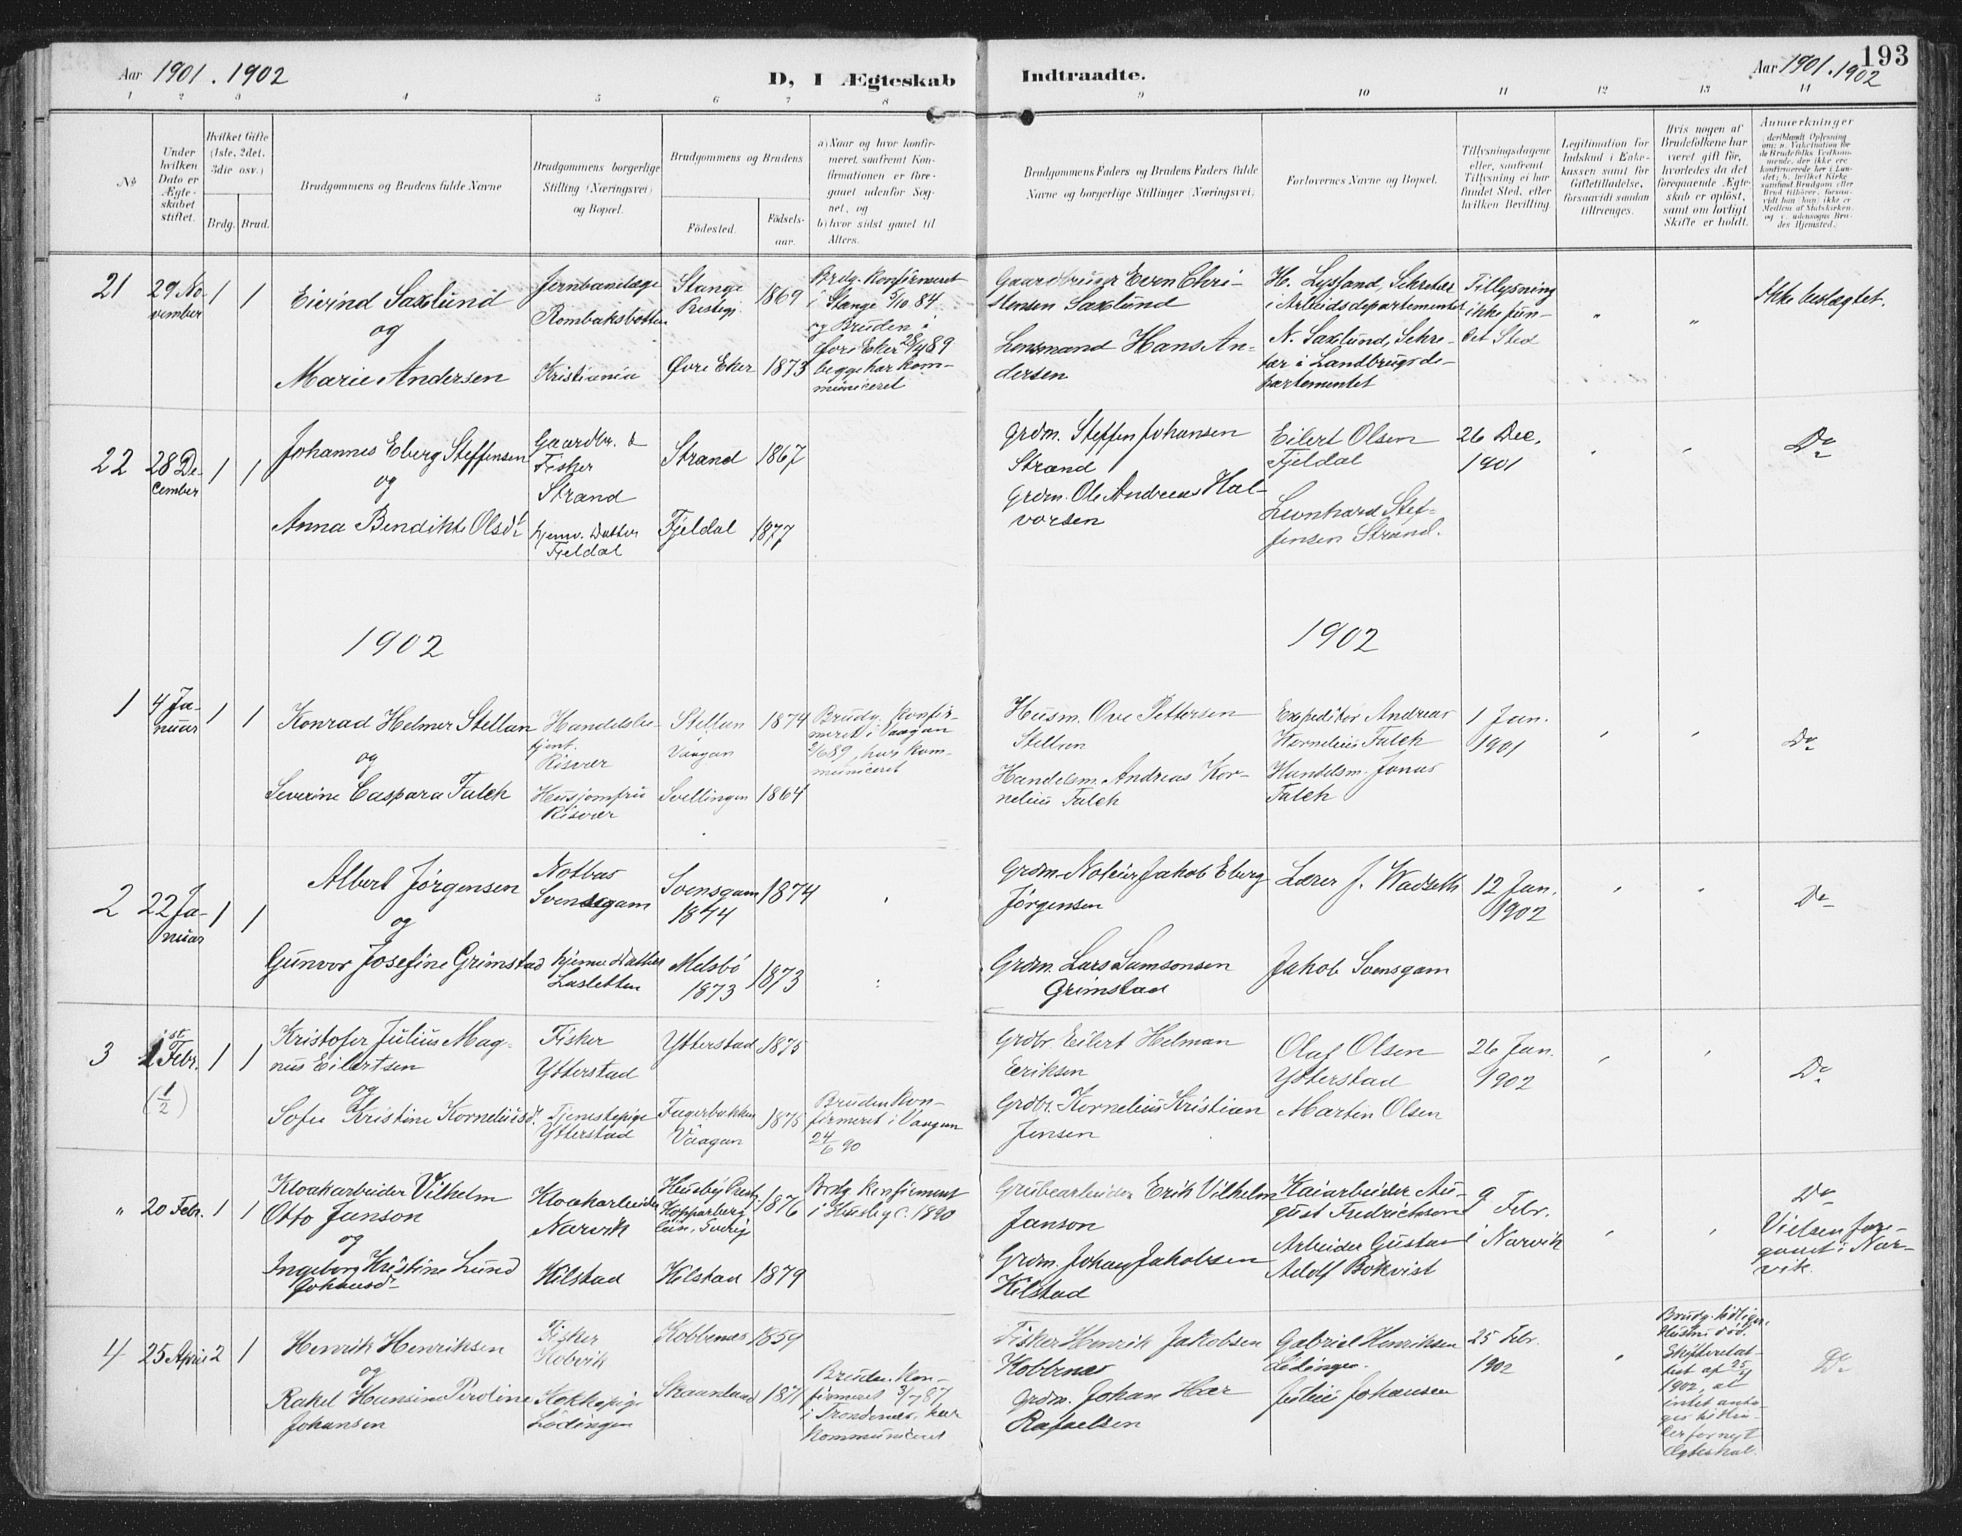 Aar 1901. 1902
D, I Ægteskab
Indtraadte.
Aar 1901. 1902
193
1 2 3 4 5 6 7 8 9 10 11 12 13 14
No
Under
hvilken
Dato er
Ægte-
skabet
stiftet.
Hvilket Gifte
(1ste, 2det,
3die osv.)
Brdg. Brud.
Brudgommens og Brudens fulde Navne
Brudgommens borgerlige
Stilling (Næringsvei)
og Bopæl.
Brudgommens og Brudens
Fødested.
Fødsels-
aar.
a) Naar og hvor konfir-
meret, saafremt Kon-
firmationen er fore-
gaaet udenfor Sog-
net, og
b) hvor sidst gaaet til
Alters.
Brudgommens Faders og Brudens Faders fulde
Navne og borgerlige Stillinger (Næringsvei).
Forlovernes Navne og Bopæl.
Tillysningsdagene
eller, saafremt
Tillysning ei har
fundet Sted, efter
hvilken Bevilling.
Legitimation for
Indskud i Enke-
kassen samt for
Giftetilladelse,
forsaavidt saadan
tiltrænges.
Hvis nogen af
Brudefolkene har
været gift før,
hvorledes da det
foregaaende Ægte-
skab er opløst,
samt om lovligt
Skifte er holdt.
Anmerkninger
21
29 No-
vember
1 1
Eivind Saxlund
og
Marie Andersen
Jernbanelæge
Rombaksbotten
Kristiania
Stange
Prestegj.
Øvre Eker
1869
1873
Brdg. konfirmeret
i Stange 5/10 84
og Bruden i
Øvre Eker 28/4 89
begge har kom-
municeret
Gaardbruger Even Chri-
stensen Saxlund
Lensmand Hans An-
dersen
H. Lysland, Sekretær
i Arbeidsdepartementet
N. Saxlund, Sekre-
tær i Landbrugsde-
partementet
Tillysning
ikke fun-
det Sted
" "
Ikke beslægtet.
22
28 De-
cember
1 1
Johannes Eberg Steffensen
og
Anna Bendikte Olsdt
Gaardbr. &
Fisker
Strand
hjemv. Datter
Fjeldal
Strand
Fjeldal
1867
1877
Grdm. Steffen Johansen
Strand
Grdm. Ole Andreas Hal-
vorsen
Eilert Olsen
Fjeldal
Leonhard Stef-
fensen Strand.
26 Dec.
1901
Do
1902
1902
1
4 Ja-
nuar
1 1
Konrad Helmer Stellan
og
Severine Caspara Falch
Handelsbe-
tjent.
Risvær
Husjomfru
Risvær
Stellan
Vaagan
Svellingen
1874
1864
Brudg. konfir-
meret i Vaagan
2/6 89, har kom-
municeret
Husm. Ove Pettersen
Stellan
Handelsm. Andreas Kor-
nelius Falch
Expeditør Andreas
Kornelius Falch
Handelsm. Jonas
Falch
1 Jan.
1901
Do
2
22 Ja-
nuar
1 1
Albert Jørgensen
og
Gunvor Josefine Grimstad
Notbas
Svensgam
hjemv. Datter
Lasletten
Svensgam
1844
Melsbø
1873
1874
1873
Grdm. Noteier Jakob Eberg
Jørgensen
Grdm. Lars Samsonsen
Grimstad
Lærer J. Wadseth
Jakob Svensgam
12 Jan.
1902
Do
3
1st
Febr.
(1/2)
1 1
Kristofer Julius Mag-
nus Eilertsen
og
Sofie Kristine Korneliusdt.
Fisker
Ytterstad
Tjenestepige
Ytterstad
Ytterstad
Fagerbakken
Vaagan
1875
1875
Bruden kon-
firmeret i Vaagan
24/6 90
Grdbr. Eilert Helman
Eeriksen
Grdbr. Kornelius Kristian
Jensen
Olaf Olsen
Ytterstad
Martin Olsen
26 Jan.
1902
Do
"
20 Febr.
1 1
Kloakarbeider Vilhelm
Otto Janson
og
Ingeborg Kristine Lund
Johansdt
Kloakarbeider
Narvik
Kilstad
Husby Prestg.
Kopparberg
Län, Sverig
Kilstad
1876
1879
Brdg. konfirmeret
i Husby c. 1890
Grubearbeider Erik Vilhelm
Janson
Grdm. Johan Jakobsen
Kilstad
Kaiarbeider Au-
gust Fredrichsen
Arbeider Gustav
Adolf Bokvist
9 Febr.
i Narvik
Do
Vielsen fore-
gaaet i Nar-
vik.
4
25 April
2 1
Henrik Henriksen
og
Rakel Hansine Peroline
Johansen
Fisker
Kobvik
Kokkepige
Lødingen
Kobbenæs
Straumland
1859
1871
Bruden kon-
firmeret 3/7 87
i Trondenæs, har
kommuniceret
Fisker Henrik Jakobsen
Kobbenæs
Grdm. Johan Hær
Rafaelsen
Gabriel Henriksen
Lødingen
Julius Johansen
25 Febr.
1902
Brudg. tidligere
Hustru død.
Skifteretsat-
test af 25/4
1902, at
intet
til hin-
der for nyt
Ægteskab.
Do